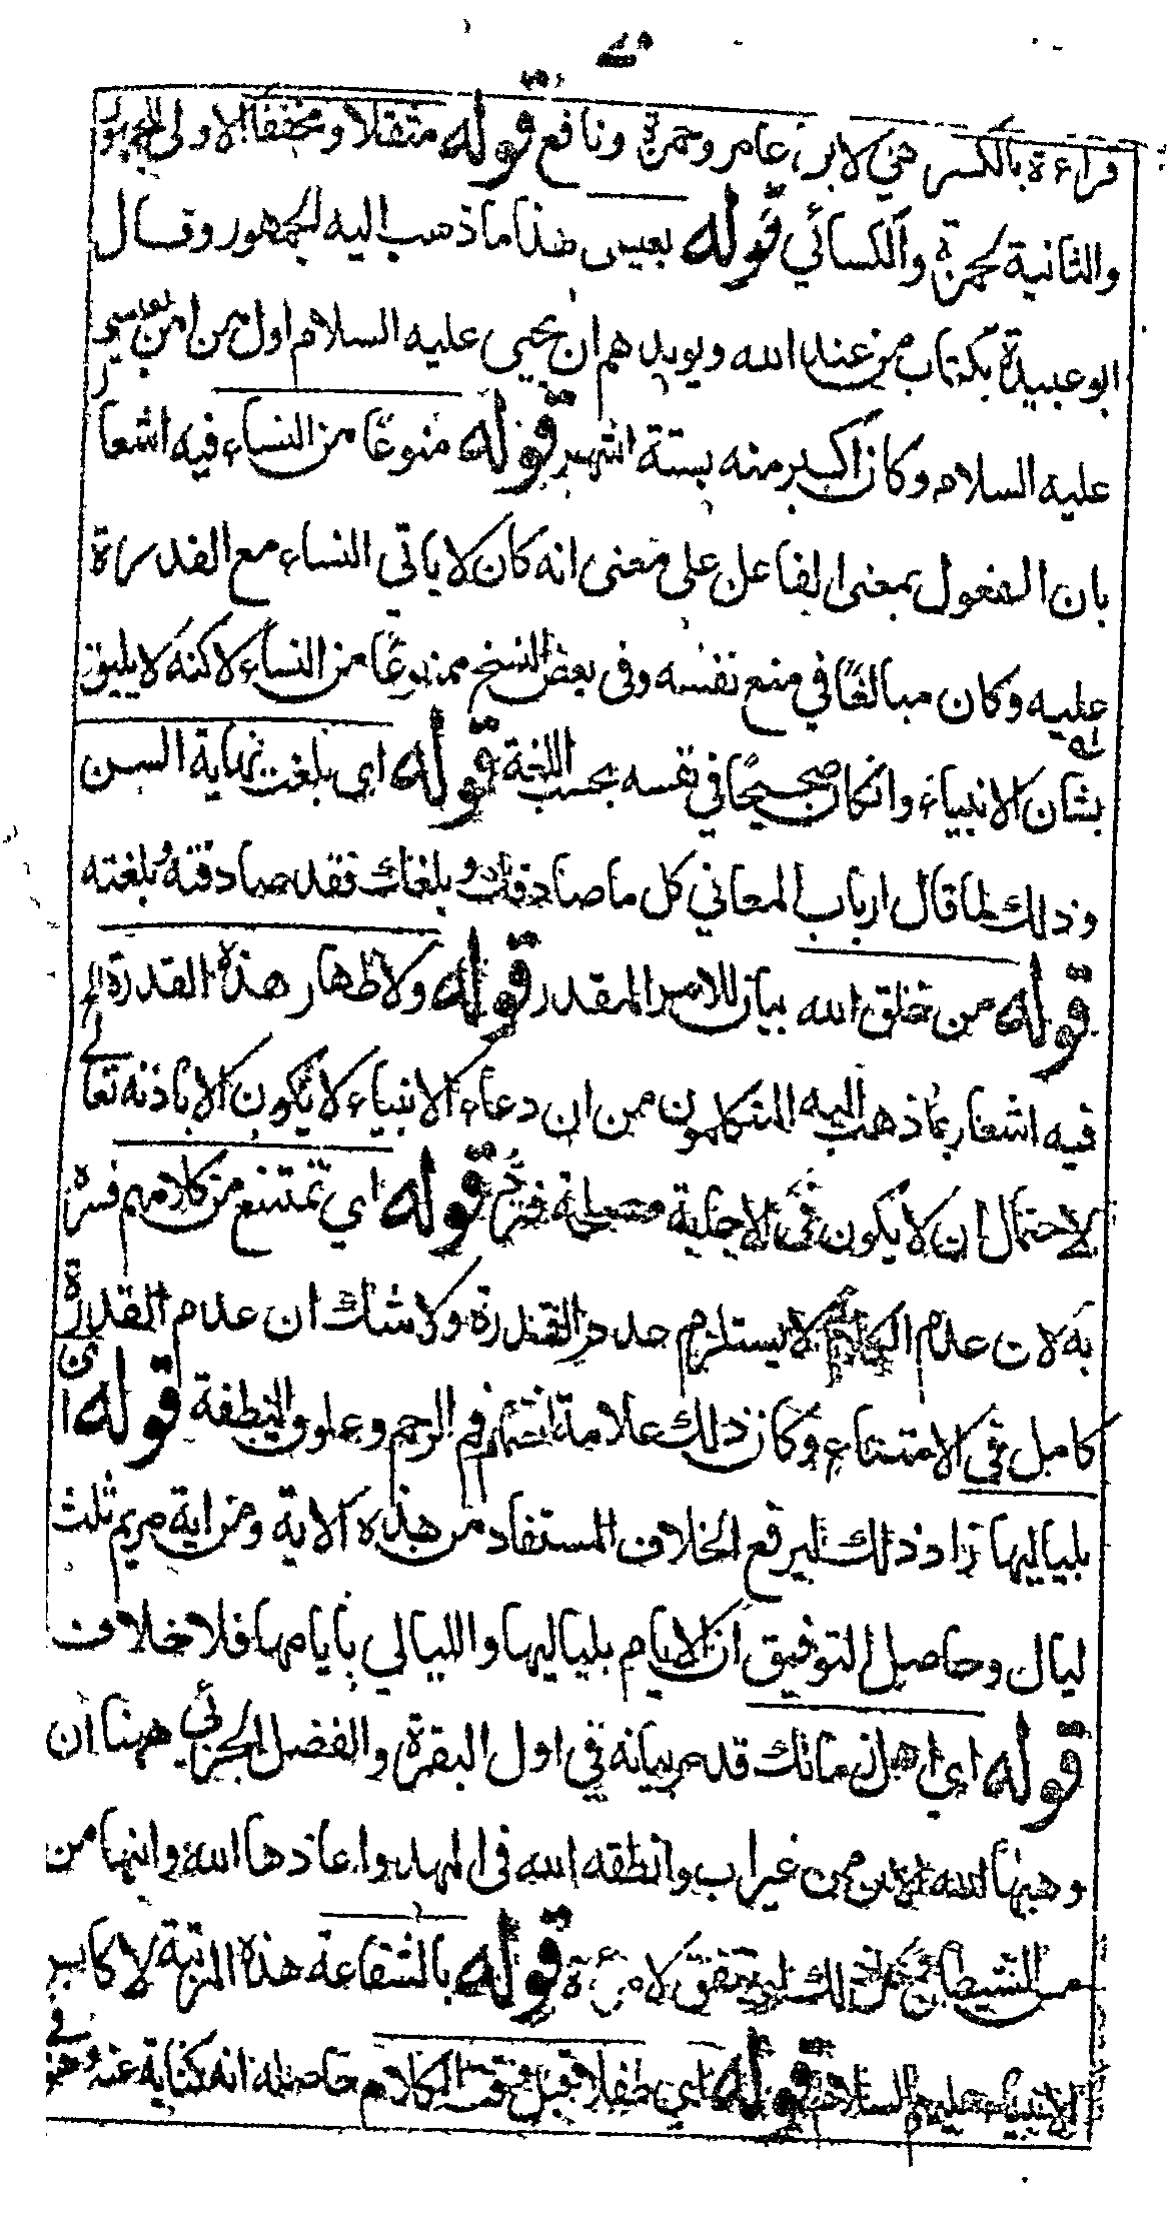 قراءة بالكسر هي لابن عامر وحمزة ونافع قوله مثقلا ومخففا الاولى للجمهور
والثانية لحمزة والكسائي قوله بعيسى هذا ما ذهب اليه الجمهور وقال
ابو عبيدة بكتاب من عند الله ويويدهم ان يحيى عليه السلام اول من امن بعيسى
عليه السلام وكان اكبر منه بستة اشهر قوله منوعًا من النساء فيه اشعار
بان المفعول بمعنى الفاعل على معنى انه كان لا ياتي النساء مع القدرة
عليه وكان مبالغًا في منع نفسه وفى بعض النسخ ممنوعًا من النساء لاكنه لا يليق
بشان الانبياء وانكان صحيحًا في نفسه بحسب اللغة قوله اي بلغت نهاية السن
وذلك لما قال ارباب المعاني كل ما صادفك وبلغك فقد صادفته وبلغته
قوله من خلق الله بيان للامر المقدر قوله ولاظهار هذه القدرة الخ
فيه اشعار بما ذهب اليه المتكلمون من ان دعاء الانبياء لا يكون الا باذنه تعالى
لاحتمال ان لا يكون في الاجابة مصلحة قوله اي تمتنع من كلامهم فسره
به لان عدم الكلام لا يستلزم عدم القدرة ولا شك ان عدم القدرة
كامل في الامتناع وكان ذلك علامة انضمام فم الرحم وعلوق النطفة قوله اى
بلياليها زاد ذلك ليرفع الخلاف المستفاد من هذه الاية ومن اية مريم ثلث
ليال وحاصل التوفيق ان الايام بلياليها والليالي بايامها فلا خلاف
قوله اي اهل زمانك قد مر بيانه في اول البقرة والفضل الجزائي ههنا ان
وهبها الله الابن من غير اب وانطقه الله فى المهد واعاذها الله وابنها من
مس الشيطان ذلك لم يتفق لامرءة قوله بالشفاعة هذه المرتبة لاكابر
الانبياء عليهم السلام قوله اي طفلا قبل وقت الكلام حاصله انه كناية عنه فهو في